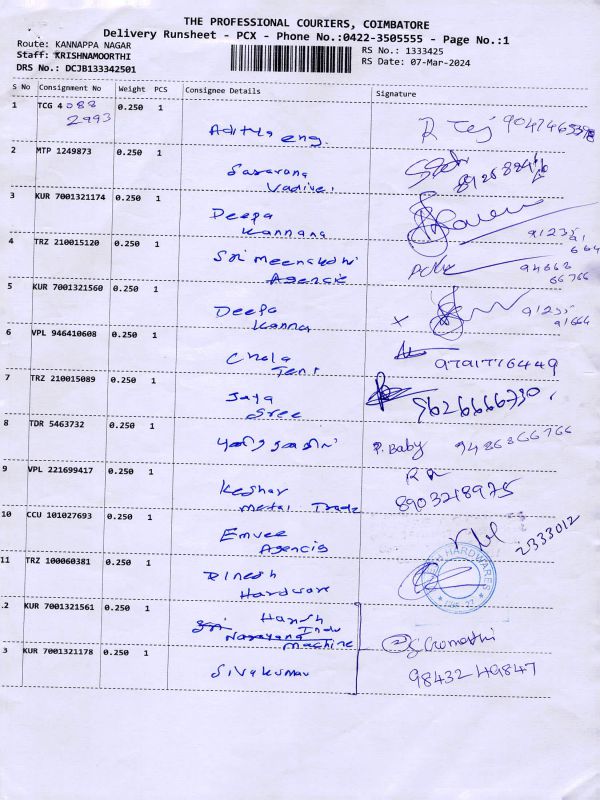 THE PROFESSIONAL COURIERS, COIMBATORE
Delivery Runsheet - PCX - Phone No.:0422-3505555 - Page No.:1
Route: KANNAPPA NAGAR
Staff: KRISHNAMOORTHI
DRS No.: DCJB133342501
RS No.: 1333425
RS Date: 07-Mar-2024
S No Consignment No Weight PCS Consignee Details Signature
1 TCG 4088 0.250 1
2993
Aditya eng. R Tej
2 MTP 1249873 0.250 1
Saravana
Vadivel
3 KUR 7001321174 0.250 1
Deepa
Kannana
91235
4 TRZ 210015120 0.250 1
Sri Meenakshi
Agencie
94868
66766
5 KUR 7001321560 0.250 1
Deepa
Kanna
91235
91664
6 VPL 946410608 0.250 1
Chola
Tent
9791776449
7 TRZ 210015089 0.250 1
Jaya
Sree
8 TDR 5463732 0.250 1
P. Baby 9486366766
9 VPL 221699417 0.250 1
Keshar
Metal Trade
8903218975
10 CCU 101027693 0.250 1
Emvee
Agencis
2333012
11 TRZ 100060381 0.250 1
Dinesh
Hardware
HARDWARES
.2 KUR 7001321561 0.250 1
Harish
Sri Indu
Narayana Machine
3 KUR 7001321178 0.250 1
Sivakumar
98432 49847